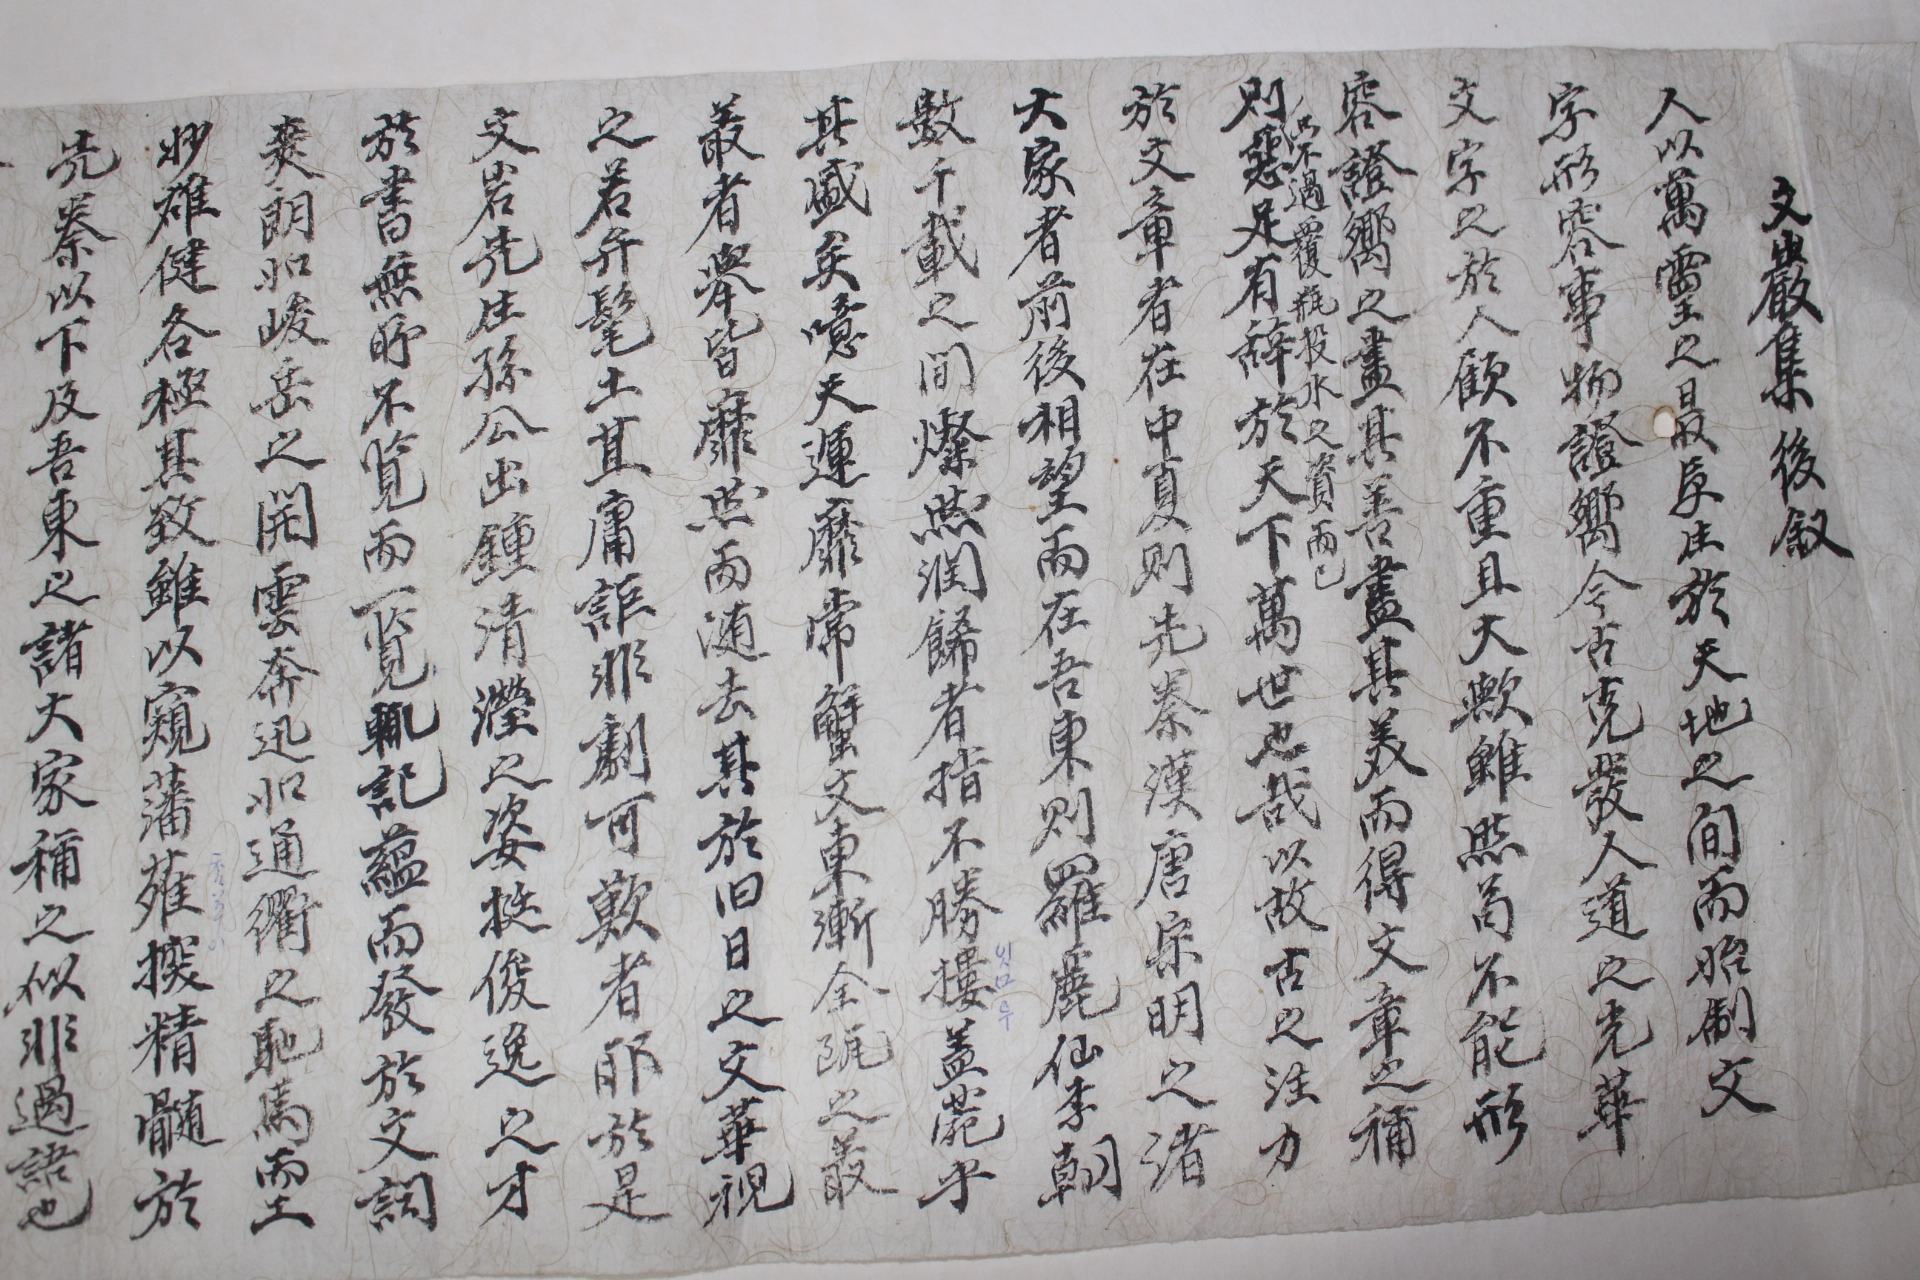 文巖集後叙
人以萬靈之最生於天地之間而始制文
字形容事物證嚮今古克發人道之光華
文字之於人顧不重且大歟雖然苟不能形
容證嚮之盡其善盡其美而得文章之稱
則不過覆瓿投水之資而已
惡足有辭於天下萬世也哉以故古之注力
於文章者在中夏則先秦漢唐宋明之諸
大家者前後相望而在吾東則羅麗仙李朝
數千載之間燦然潤餙者指不勝摟盖菀乎
其盛矣噫天運靡常蟹文東漸全甌之叢
叢者擧皆靡然而随去其於旧日之文華視
之若弁髦土苴庸詎非劇可歎者耶於是
文岩先生孫公出鍾清瀅之姿挺俊逸之才
於書無所不覽而一覽輒記蘊而發於文詞
爽朗如峻岳之開雲奔迅如通衢之馳馬而工
妙雄健各極其致雖以窺藩蕥探精髓於
先秦以下及吾東之諸大家稱之似非過語也